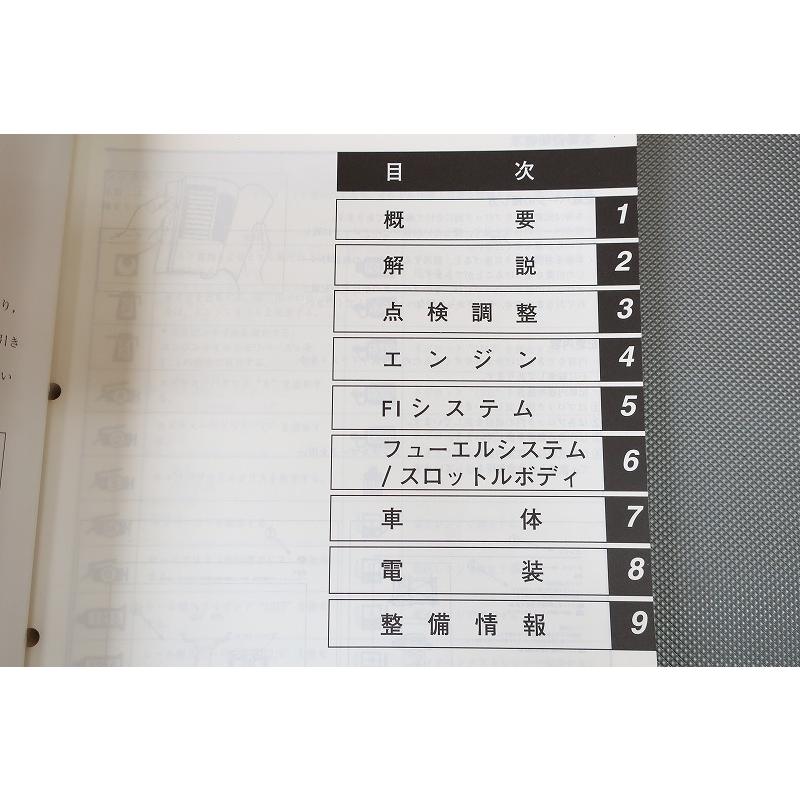 目次
概要 1
解説 2
点検調整 3
エンジン 4
FIシステム 5
フューエルシステム
/スロットルボディ 6
車体 7
電装 8
整備情報 9
り,
引き
い